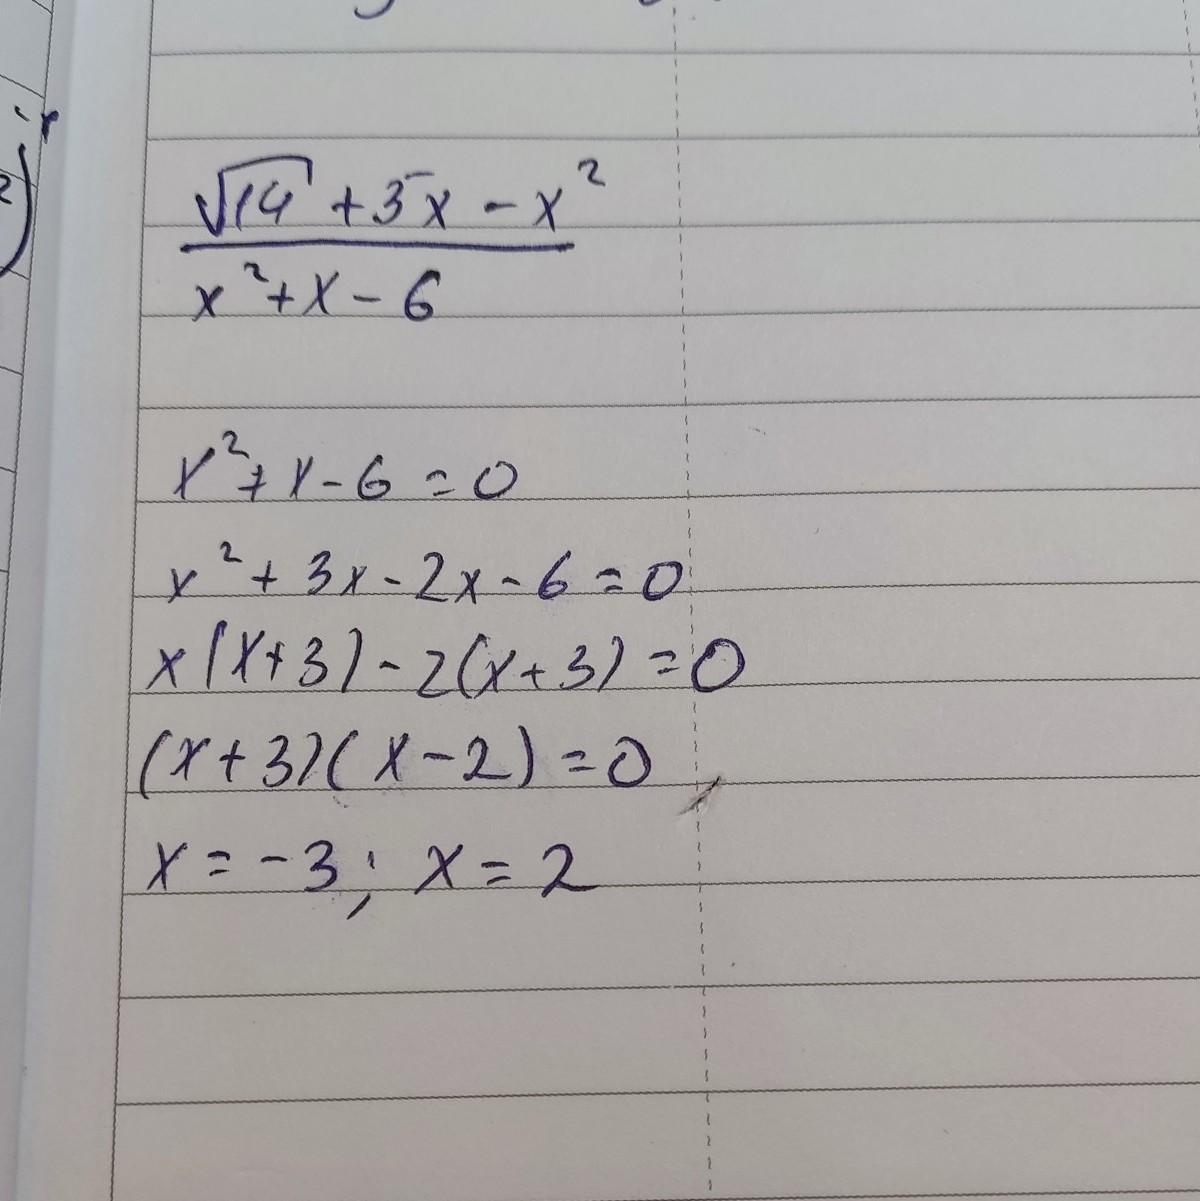 √14 + 5x - x²
x² + x - 6
x² + x - 6 = 0
x² + 3x - 2x - 6 = 0
x(x+3) - 2(x+3) = 0
(x+3)(x-2) = 0
x = -3; x = 2